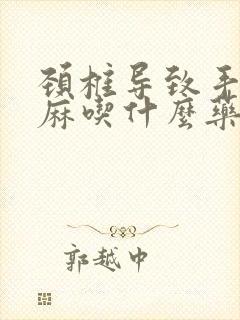 頚椎导致手
麻喫什麼藥
郭越中